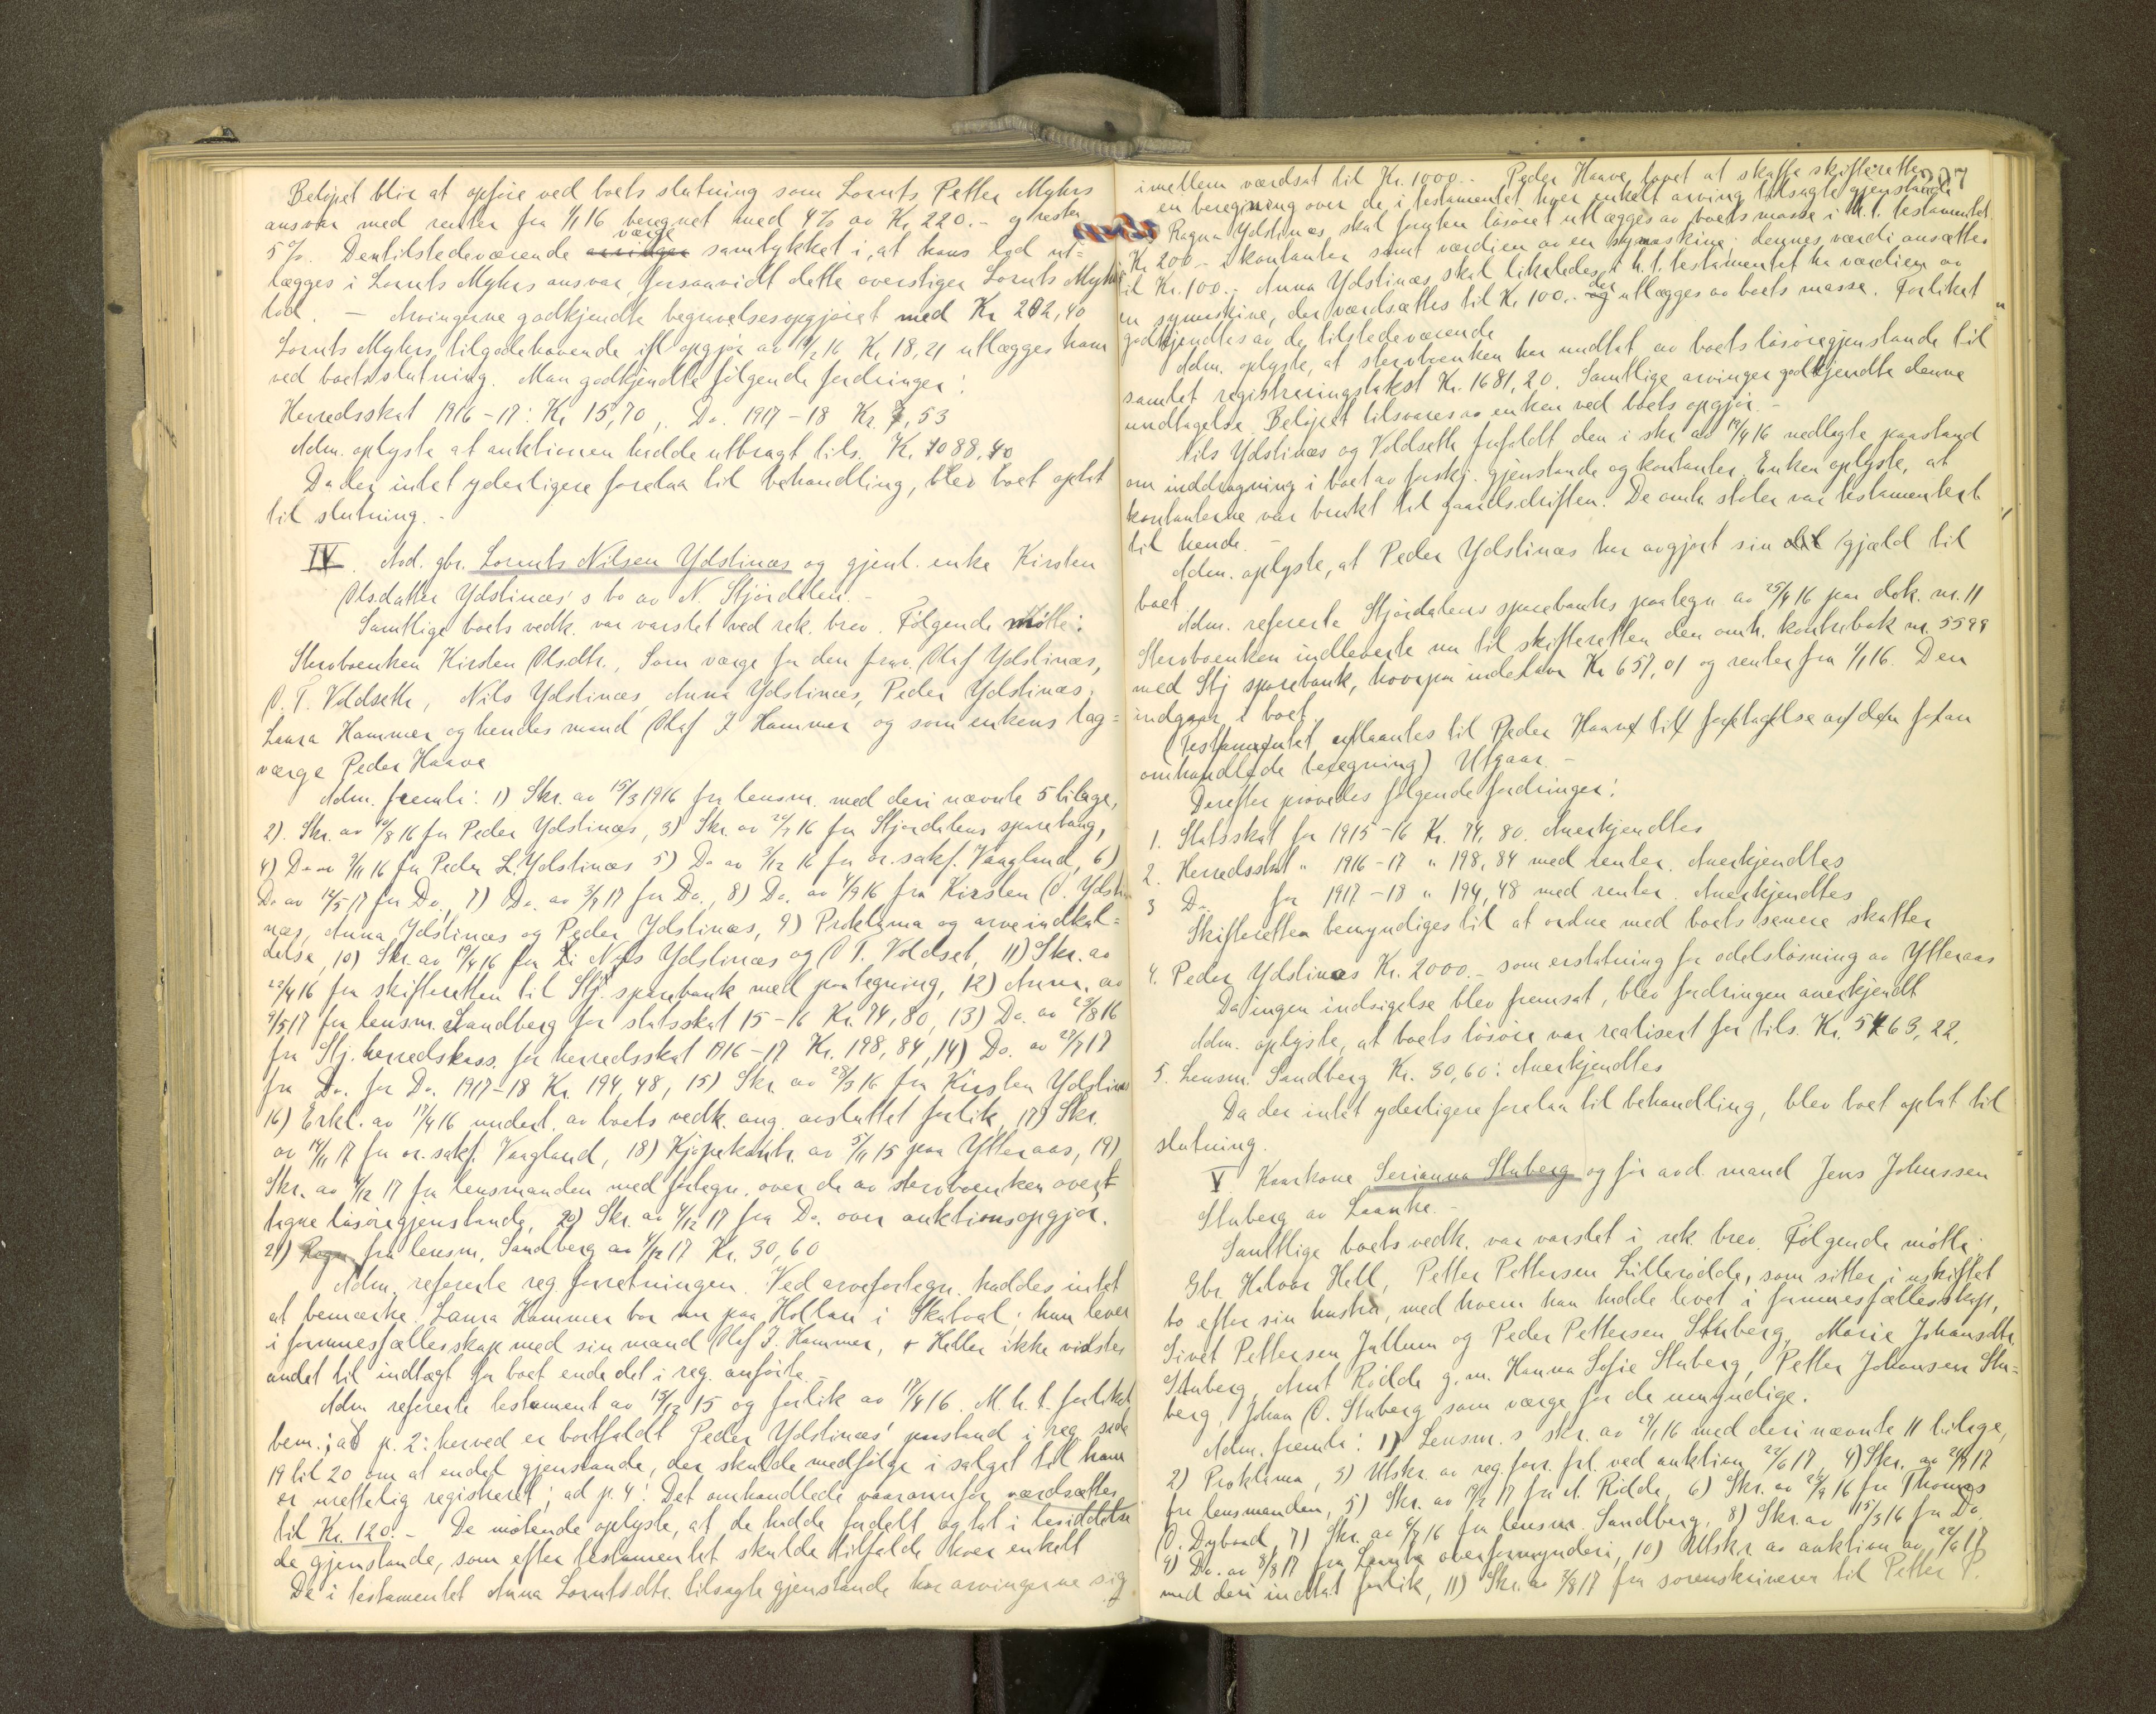 Beløpet blir at opføre ved boets slutning som Lornts Petter Myhrs
ansvar med renter fra 1/1 16 beregnet med 4% av Kr. 220.- og resten
5%. Den tilstedeværende verge samtykket i, at hans lod ut=
lægges i Lornts Myhrs ansvar, forsaavidt dette overstiger Lornts Myhrs
lod. - Arvingerne godkjendte begravelsesopgjøret med Kr 202,40
Lornts Myhrs tilgodehavende ifl. opgjør av /2 16 Kr. 18,21 utlægges ham
ved boets slutning. Man godkjendte følgende fordringer:
Herredsskat 1916-17: Kr 15,70, Do. 1917-18 Kr. 7,53
Adm. oplyste at auktionen hadde utbragt tils. Kr. 7088,40
Da der intet yderligere forelaa til behandling, blev boet optat
til slutning. -
IV. Avd. gbr. Lornts Nilsen Ydstines og gjenl. enke Kirsten
Olsdatter Ydstines's bo av N. Stjørdalen. -
Samtlige boets vedk. var varslet ved rek. brev. Følgende møtte:
Stervboenken Kirsten Olsdtr., Som værge for den frav. Olaf Ydstines,
O. T. Voldseth, Nils Ydstines, Anna Ydstines, Peder Ydstines,
Laura Hammer og hendes mand Olaf J Hammer og som enkens lag=
værge Peder Haave
Adm. fremla: 1) Skr. av 15/3 1916 fra lensm. med deri nævnte 5 bilage,
2). Skr. av /8 16 fra Peder Ydstines, 3) Skr. av 24/7 16 fra Stjørdalens sparebank,
4) Do av 9/11 16 fra Peder L. Ydstines 5) Do av 3/12 16 fra or. sakf. Vaagland, 6)
Do av 12/5 17 fra Do., 7) Do. av 3/7 17 fra Do., 8) Do. av 4/9 16 fra Kirsten O. Ydsti
nes, Anna Ydstines og Peder Ydstines, 9) Proklama og arveindkal=
delse, 10) Skr. av 19/4 16 fra Nils Ydstines og O T. Voldset, 11) Skr. av
22/4 16 fra skifteretten til Stj. sparebank med paategning, 12) Anm. av
9/5 17 fra lensm. Sandberg for statsskat 15-16 Kr. 74,80, 13) Do. av 23/8 16
fra Stj. herredskass. for herredsskat 1916-17 Kr. 198,84, 14) Do. av 27/7 17
fra Do. for Do. 1917-18 Kr. 194,48, 15) Skr av 28/3 16 fra Kirsten Ydstines
16) Erkl. av 17/4 16 undert. av boets vedk. ang. avsluttet forlik, 17) Skr.
av 14/11 17 fra or. sakf. Vaagland, 18) Kjøpekontr. av 5/11 15 paa Ytteraas, 19)
Skr. av 4/12 17 fra lensmanden med fortegn. over de av stervboenken overt
tagne løsøregjenstande, 20) Skr. av 4/12 17 fra Do. over auktionsopgjør.
21) Regn fra lensm. Sandberg av 4/12 17 Kr. 30,60
Adm. refererte reg. forretningen. Ved arvefortegn. haddes intet
at bemærke. Laura Hammer bor nu paa Hollan i Skatval. hun lever
i formuesfællesskap med sin mand Olaf J. Hammer, Heller ikke vidstes
andet til indtægt for boet end det i reg. anførte.
Adm refererte testament av 15/12 15 og forlik av 17/4 16. M. h. t. forliket
bem.: ad p. 2: herved er bortfaldt Peder Ydstines' paastand i reg. side
19 til 20 om at endel gjenstande, der skulde medfølge i salget til ham
er urettelig registreret; ad p. 4: Det omhandlede vaaronnfor værdsættes
til Kr. 120.- De møtende oplyste, at de hadde fordelt og tat i besiddelse
de gjenstande, som efter testamentet skulde tilfalde hver enkelt
De i testamentet Anna Lorntsdtr. tilsagte gjenstande har arvingerne sig
imellem værdsat til Kr. 1000.- Peder Haave lovet at skaffe skifteretten
en beregning over de i testamentet hver enkelt arving tilsagte gjenstande
Ragna Ydstines, skal foruten løsøret utlægges av boets masse i h.t. testamentet
Kr 200 - i kontanter samt værdien av en symaskine; dennes værdi ansættes
til Kr. 100.- Anna Ydstines skal likeledes i h. t. testamentet ha værdien av
en symaskine, der værdsættes til Kr 100.- der utlægges av boets masse. Forliket
godkjendtes av de tilstedeværende
Adm. oplyste, at stervboenken har undtat av boets løsøregjenstande til
samlet registreringstakst Kr. 1681,20. Samtlige arvinger godkjendte denne
undtagelse. Beløpet tilsvares av enken ved boets opgjør. -
Nils Ydstines og Voldseth frafaldt den i skr av 19/4 16 nedlagte paastand
om inddragning i boet av forskj. gjenstande og kontanter. Enken oplyste, at
kontanterne var brukt til gaardsdriften. De omh. stoler var testamentert
til hende. -
Adm. oplyste, at Peder Ydstines har avgjort sin gjæld til
boet.
Adm. refererte Stjørdalens sparebanks paategn. av 25/4 16 paa dok. nr. 11
Stervboenken indleverte nu til skifteretten den omh. kontrabok nr. 5599
med Stj sparebank, hvorpaa indestaar Kr 657,01 og renter fra 1/1 16. Den
indgaar i boet.
(Testamentet utlaantes til Peder Haave til foretagelse av den foran
omhandlede beregning) Utgaar. -
Derefter prøvedes følgende fordringer:
1. Statsskat for 1915-16 Kr. 74,80. Anerkjendtes
2. Herredsskat " 1916-17 " 198,84 med renter. Anerkjendtes
3 Do. for 1917-18 " 194,48 med renter. Anerkjendtes
Skifteretten bemyndiges til at ordne med boets senere skatter
4. Peder Ydstines Kr. 2000.- som erstatning for odelsløsning av Ytteraas
Da ingen indsigelse blev fremsat, blev fordringen anerkjendt
Adm. oplyste, at boets løsøre var realisert for tils. Kr. 5463,22,
5. Lensm. Sandberg Kr. 30,60: Anerkjendtes
Da der intet yderligere forelaa til behandling, blev boet optat til
slutning.
V. Kaarkone Serianna Stuberg og før avd. mand Jens Johnssen
Stuberg av Laanke. -
Samtlige boets vedk. var varslet i rek. brev. Følgende møtte:
Gbr. Halvor Hell, Petter Pettersen Lillerødde, som sitter i uskiftet
bo efter sin hustru, med hvem han hadde levet i formuesfællesskap,
Sivert Pettersen Jullum og Peder Pettersen Stuberg, Marie Johansdtr
Stuberg, Arnt Rødde g. m. Hanna Sofie Stuberg, Petter Johansen Stu=
berg, Johan O. Stuberg som værge for de umyndige.
Adm. fremla: 1) Lensm. s skr. av 29/1 16 med deri nævnte 11 bilage,
2) Proklama, 3) Utskr. av reg. forr. frl. ved auktion 22/6 17, 4) Skr. av 24/9 17
fra lensmanden, 5) Skr. av 9/2 17 fra A. Rødde, 6) Skr. av 24/9 16 fra Thomas
O. Dybvad, 7) Skr. av 6/7 16 fra lensm. Sandberg, 8) Skr. av 15/3 16 fra Do.
9) Do. av 8/8 17 fra Laanke overformynderi, 10) Utskr av auktion av 22/6 17
med deri indtat forlik, 11) Skr. av 3/8 17 fra sorenskriveren til Petter P.